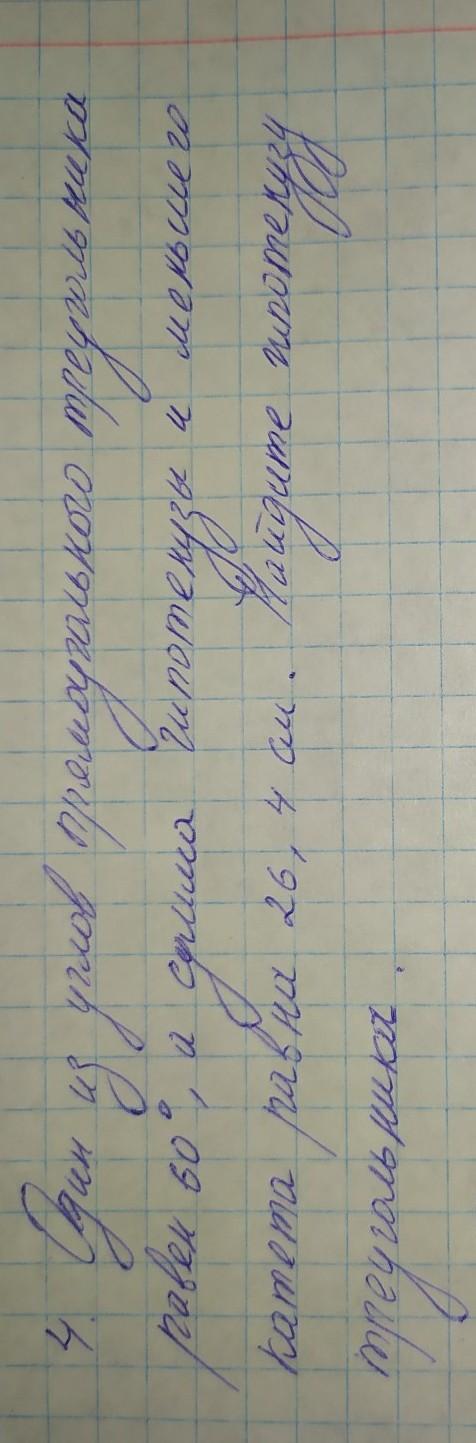 4. Один из углов прямоугольного треугольника
равен 60°, а сумма гипотенузы и меньшего
катета равна 26,4 см. Найдите гипотенузу
треугольника.